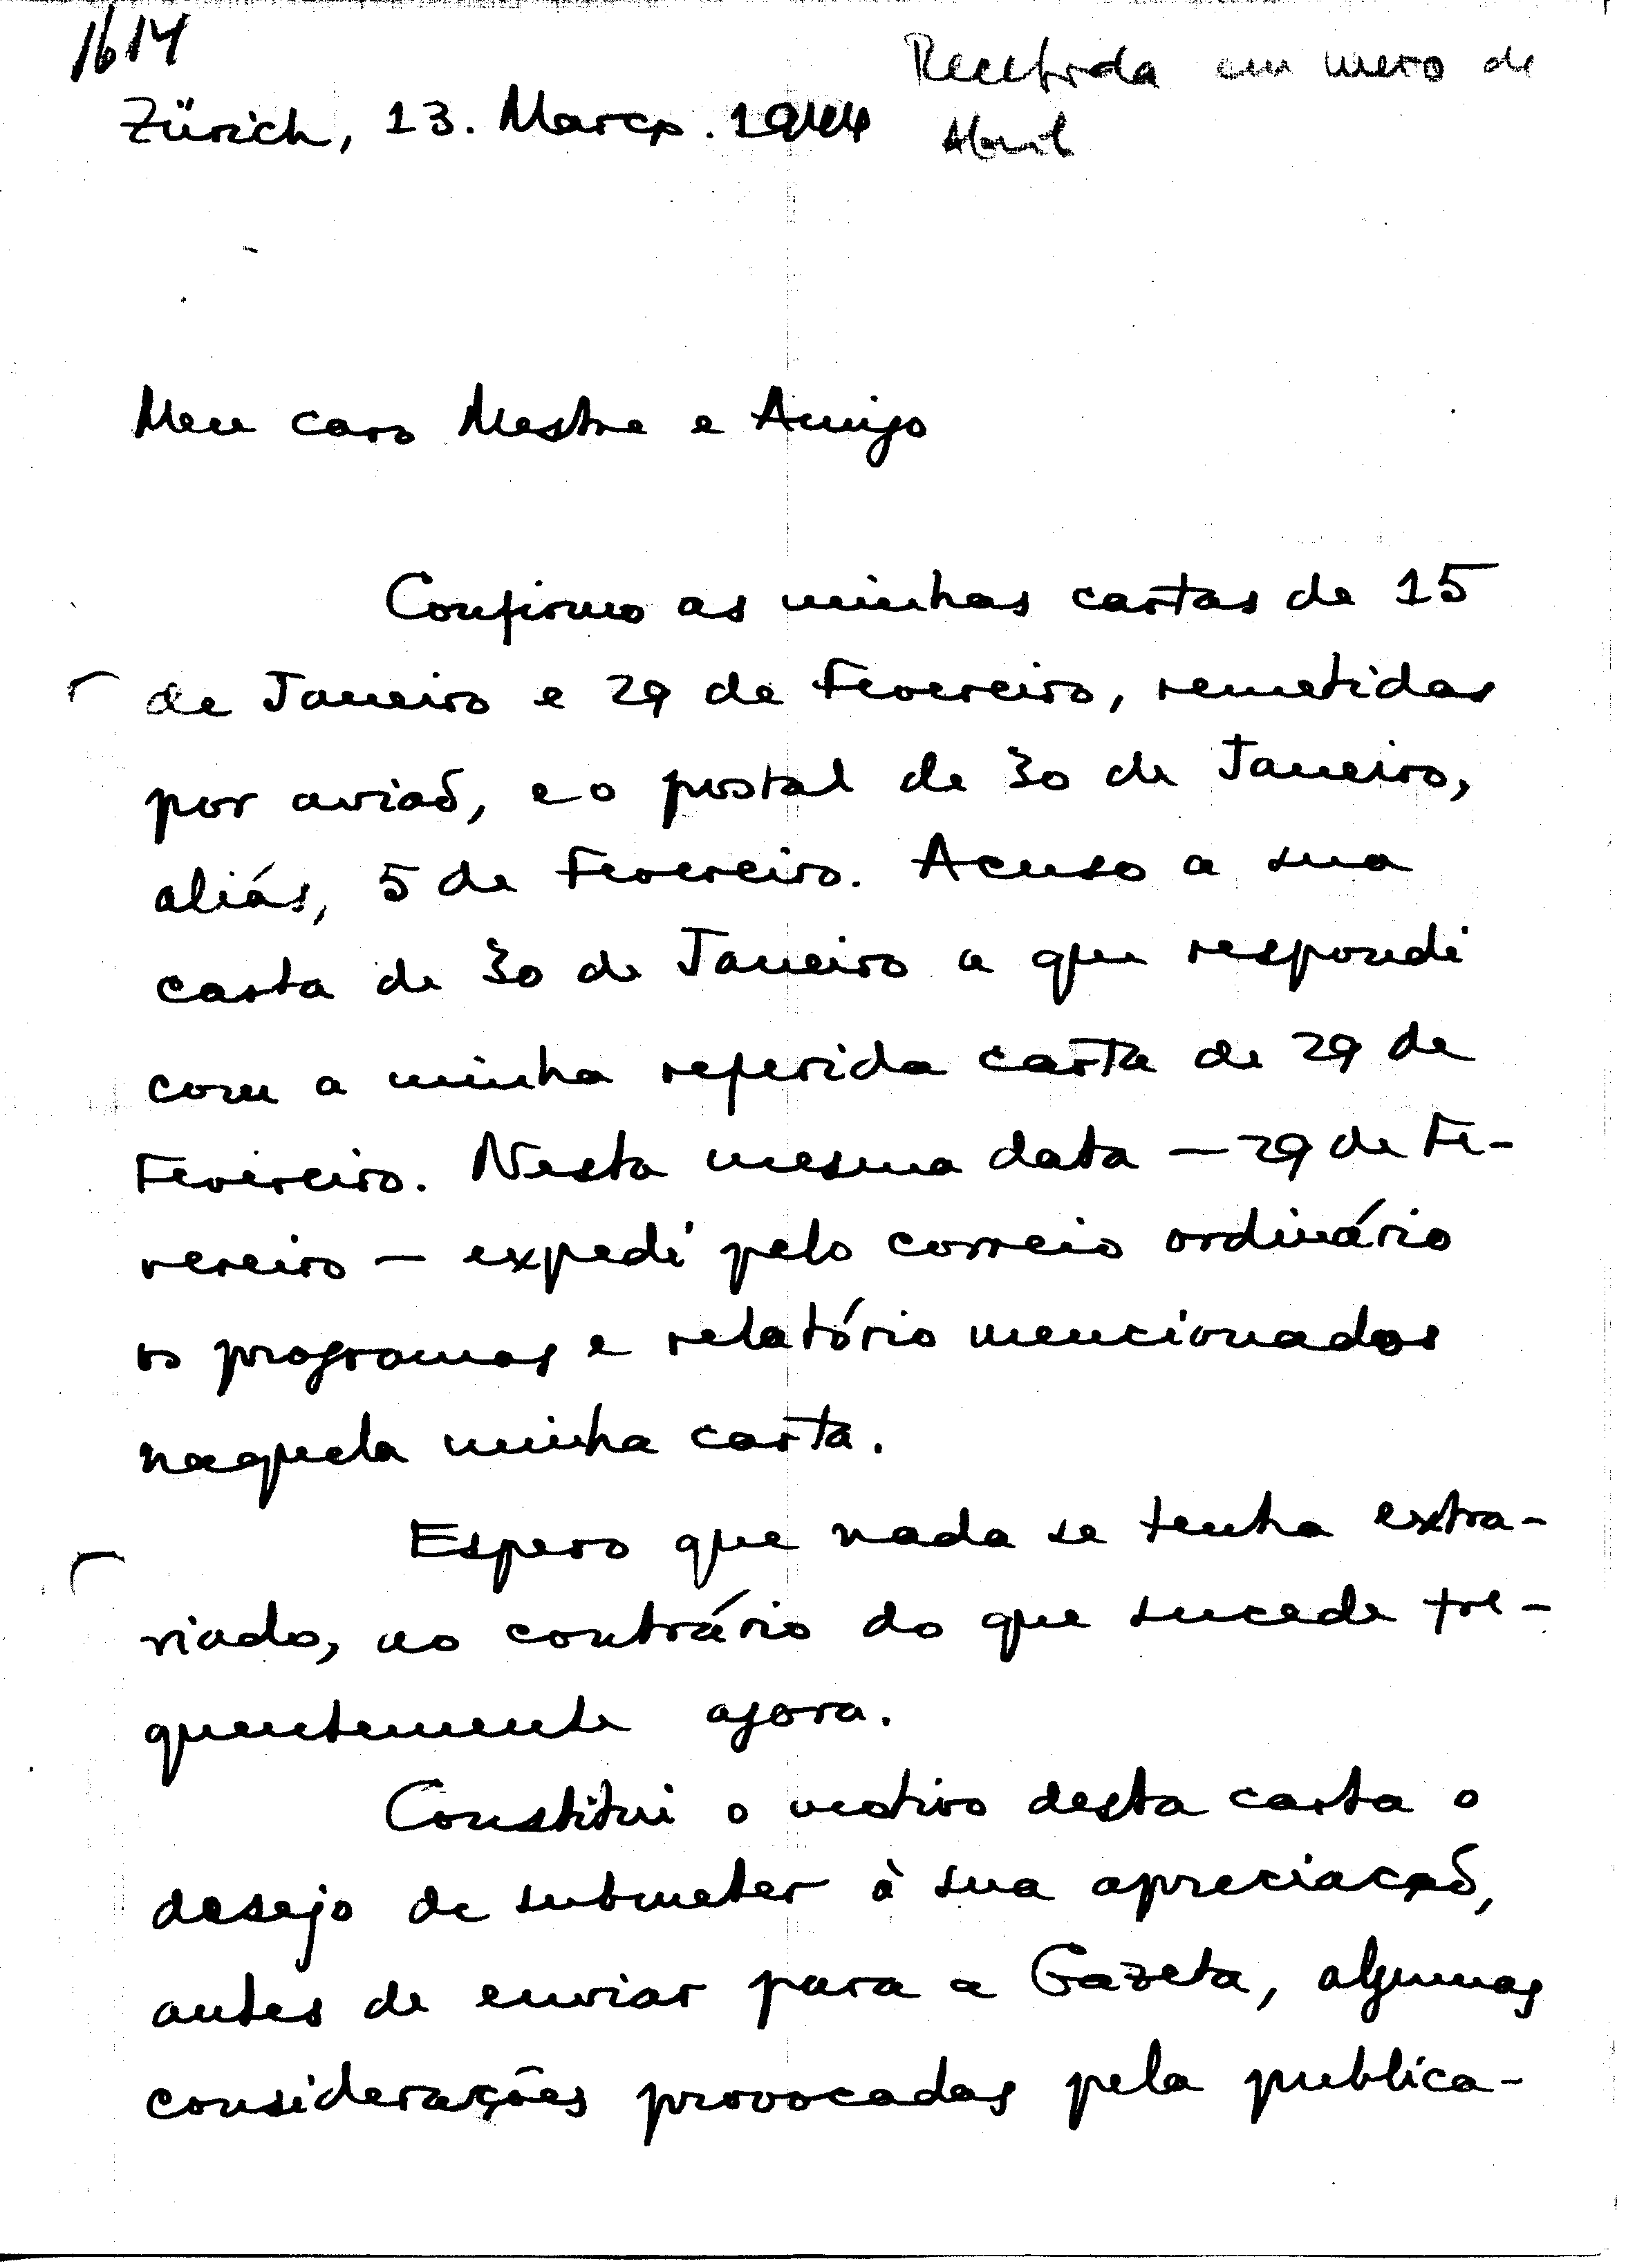 1614
Recebida em meio de
Abril
Zürich, 13. Março. 1944
Meu caro Mestre e Amigo
Confirmo as minhas cartas de 15
de Janeiro e 29 de Fevereiro, remetidas
por avião, e o postal de 30 de Janeiro,
aliás, 5 de Fevereiro. Acuso a sua
carta de 30 de Janeiro a que respondi
com a minha referida carta de 29 de
Fevereiro. Nesta mesma data — 29 de Fe-
vereiro — expedi pelo correio ordinário
os programas e relatório mencionados
naquela minha carta.
Espero que nada se tenha extra-
viado, ao contrário do que sucede fre-
quentemente agora.
Constitui o motivo desta carta o
desejo de submeter à sua apreciação,
antes de enviar para a Gazeta, algumas
considerações provocadas pela publica-